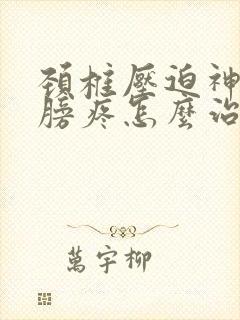 頚椎壓迫神
膀疼怎麼治
萬宇柳